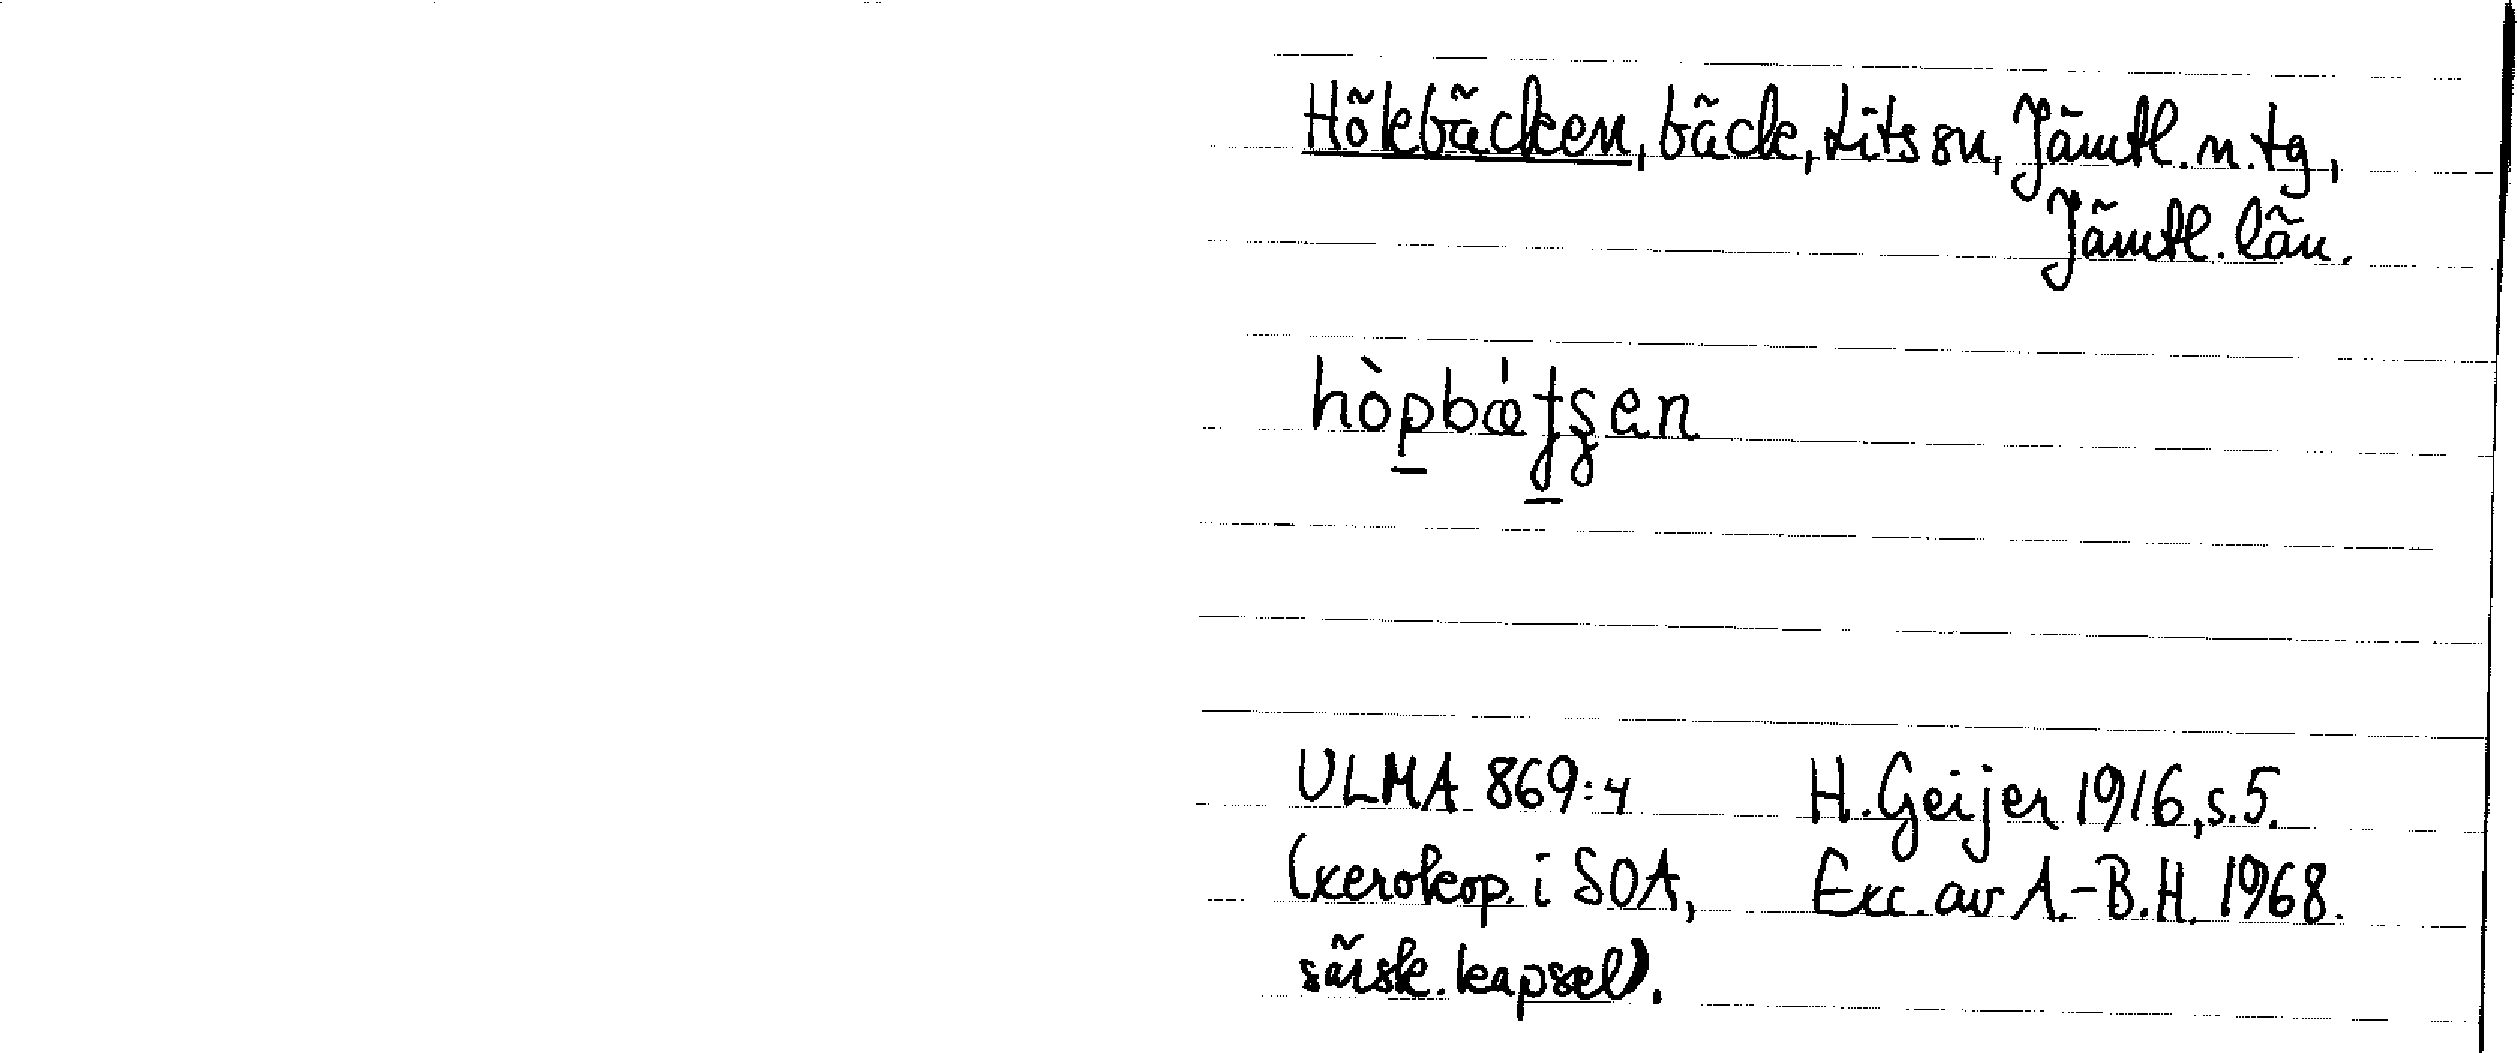 Hökebäcken, bäck, Lits sn, Jämtl. n. tg,
Jämtl. län.
hòpbæ̀tʂen
ULMA 869:4 H. Geijer 1916, s. 5.
(xerokop. i SOA, Exc. av A.-B.H. 1968.
särsk. kapsel).